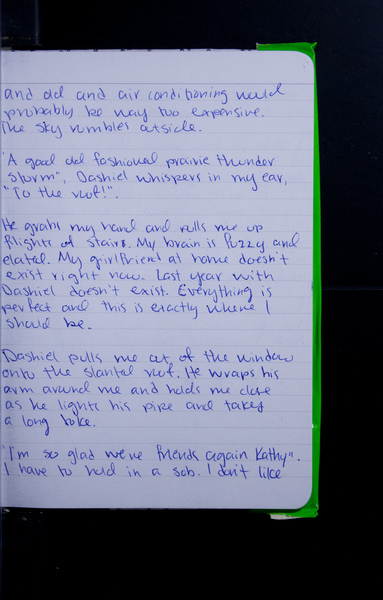 and old and air conditioning would
probably be way too expensive.
The sky rumbles outside.
"A good old fashioned prairie thunder
storm", Dashiel whispers in my ear,
"To the roof!".
He grabs my hand and pulls me up
flights of stairs. My brain is fuzzy and
elated. My girlfriend at home doesn't
exist right now. Last year with
Dashiel doesn't exist. Everything is
perfect and this is exactly where I
should be.
Dashiel pulls me out of the window
onto the slanted roof. He wraps his
arm around me and holds me close
as he lights his pipe and takes
a long toke.
"I'm so glad we're friends again Kathy".
I have to hold in a sob. I don't like